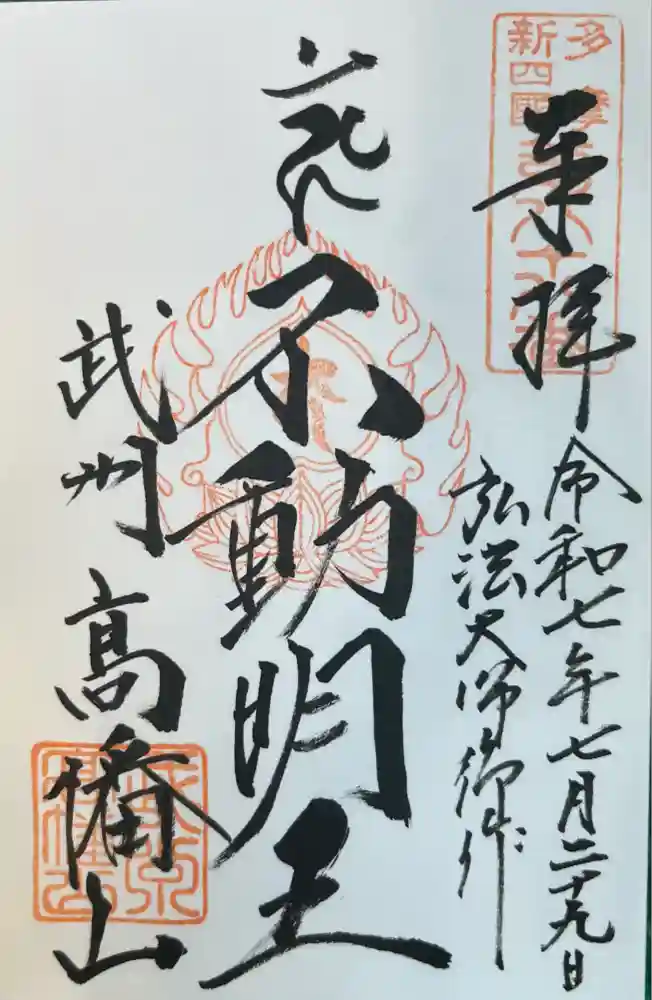 多摩
新四国
奉拝
令和七年七月二十九日
弘法大師御作
不動明王
武州
高幡山